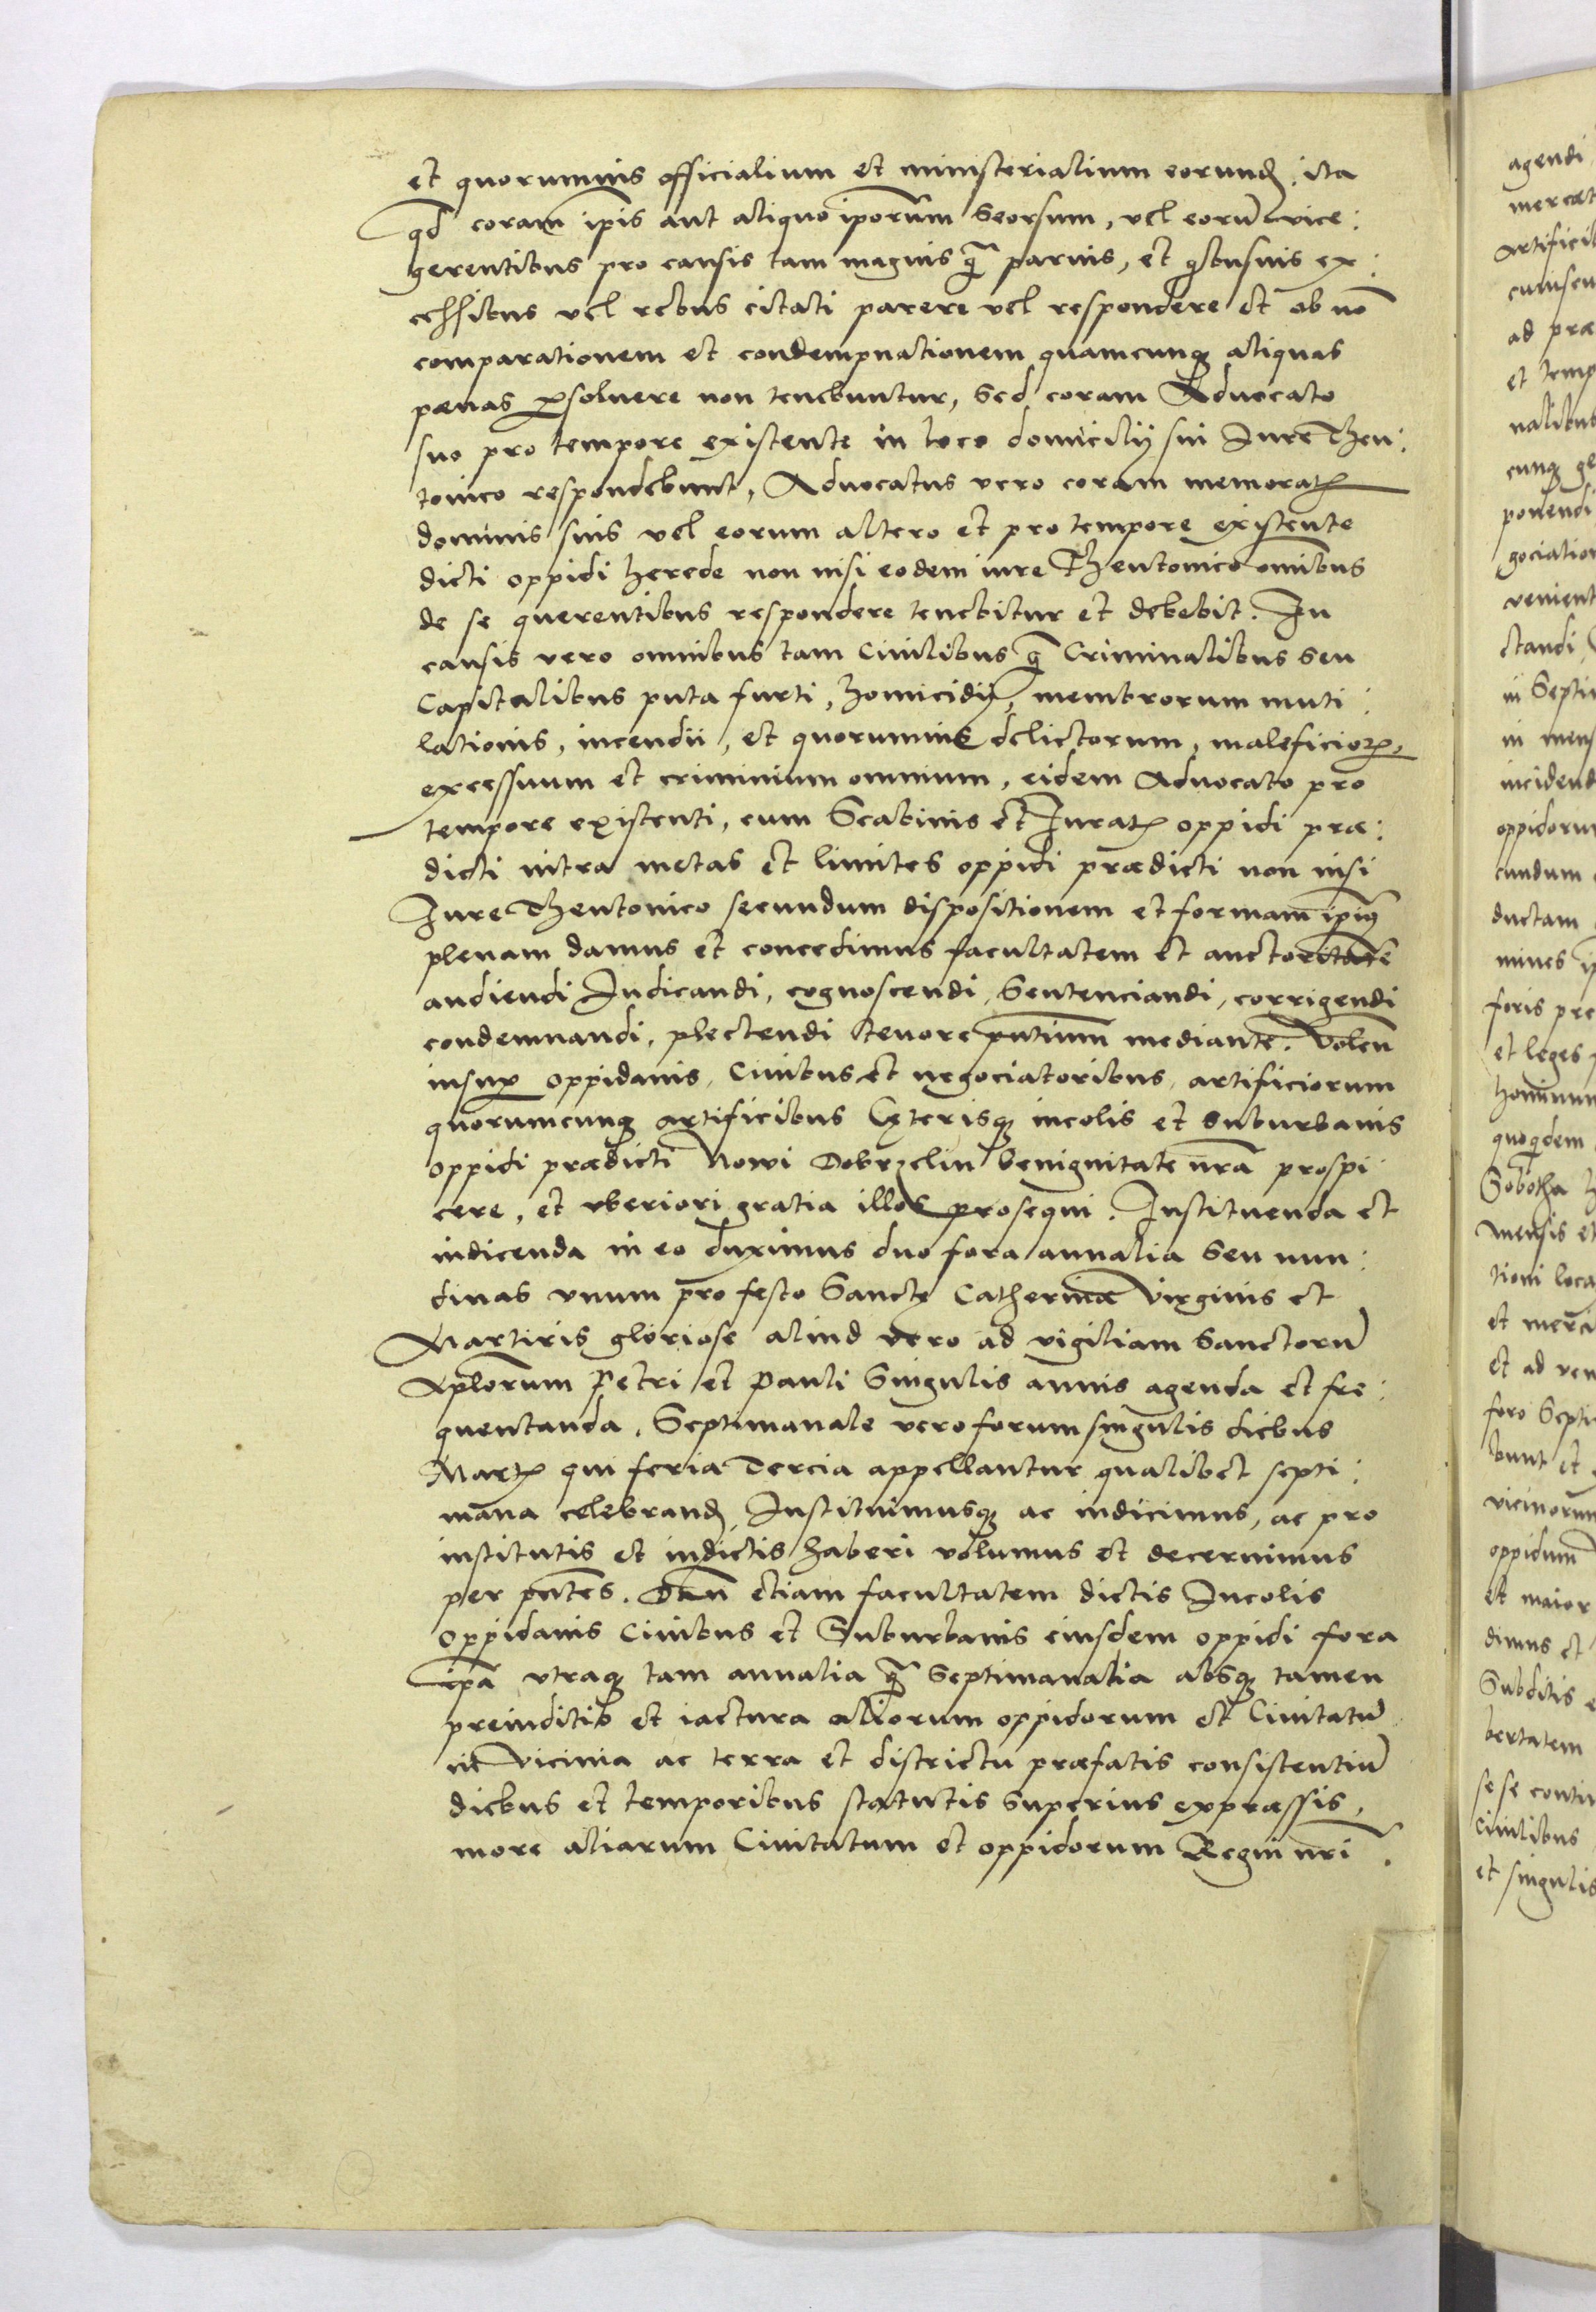 et quorumuis officialium et ministerialium eorund. ita
qd coram ipis aut aliquo iporum seorsum, vel eorū vice:
gerentibus pro causis tam magnis q̄ paruis, et qbusuis ex:
cessibus vel rebus citati parere vel respondere et ob nō
comparationem et condempnationem quamcunq; aliquas
pœnas psoluere non tenebuntur, Sed coram Aduocato
suo pro tempore existente in loco domicilij sui Iure Theu:
tonico respondebunt, Aduocatus vero coram memorat
dominis suis vel eorum altero et pro tempore existente
dicti oppidi herede non nisi eodem iure Theutonico omibus
de se querentibus respondere tenebitur et debebit. In
causis vero omnibus tam Ciuilibus q̄ Criminalibus seu
Capitalibus puta furti, homicidij, membrorum muti:
lationis, incendii, et quorumuis delictorum, maleficior,
excessuum et criminium omnium, eidem Aduocato pro
tempore existenti, cum Scabinis et Iurat oppidi præ:
dicti intra metas et limites oppidi prædicti non nisi
Iure Theutonico secundum dispositionem et formam ipi9
plenam damus et concedimus facultatem et auctoritatē
audiendi Iudicandi, cognoscendi, Sentenciandi, corrigendi
condemnandi, plectendi tenore pntium mediante. Volen
insup oppidanis, Ciuibus et negociatoribus, artificiorum
quorumcunq; artificibus Cęterisq; incolis et suburbanis
oppidi prædicti Nowi Dobrzelin benignitate nrā prospi:
cere, et vberiori gratia illos prosequi. Instituenda et
indicenda in eo duximus duo fora annalia seu nun:
dinas vnum pro festo Sanctę Catherinæ Virginis et
Martiris gloriose aliud vero ad vigiliam Sanctorū
Aplorum Petri et Pauli Singulis annis agenda et fre:
quentanda. Septimanale vero forum singulis diebus
Mart qui feria Tercia appellantur qualibet septi:
mana celebrand, Instituimusq; ac indicimus, ac pro
institutis et indictis haberi volumus et decernimus
per pntes. Dan etiam facultatem dictis Incolis
oppidanis Ciuibus et Suburbanis eiusdem oppidi fora
ipa vtraq; tam annalia q̄ Septimanalia absq; tamen
preiuditio et iactura aliorum oppidorum et Ciuitatū
in Vicinia ac terra et districtu præfatis consistentiū
diebus et temporibus statutis superius expræssis,
more aliarum Ciuitatum et oppidorum Regni nri.
agendi
artifici
ad præ
et temp
nalibus
cunq; ge
ponendi
gociation
venient
ctandi
in Septi
in mens
incidend
oppidorum
cundum
ductam
mines
foris pre
et leges
hominum
quoqdem
Sobotha
mensis et
tioni loca
et merci
et ad ven
foro Septi
bunt et
vicinorum
oppidum
et maior
dimus et
Subditis
bertatem
sese contin
Ciuilibus
et singulis